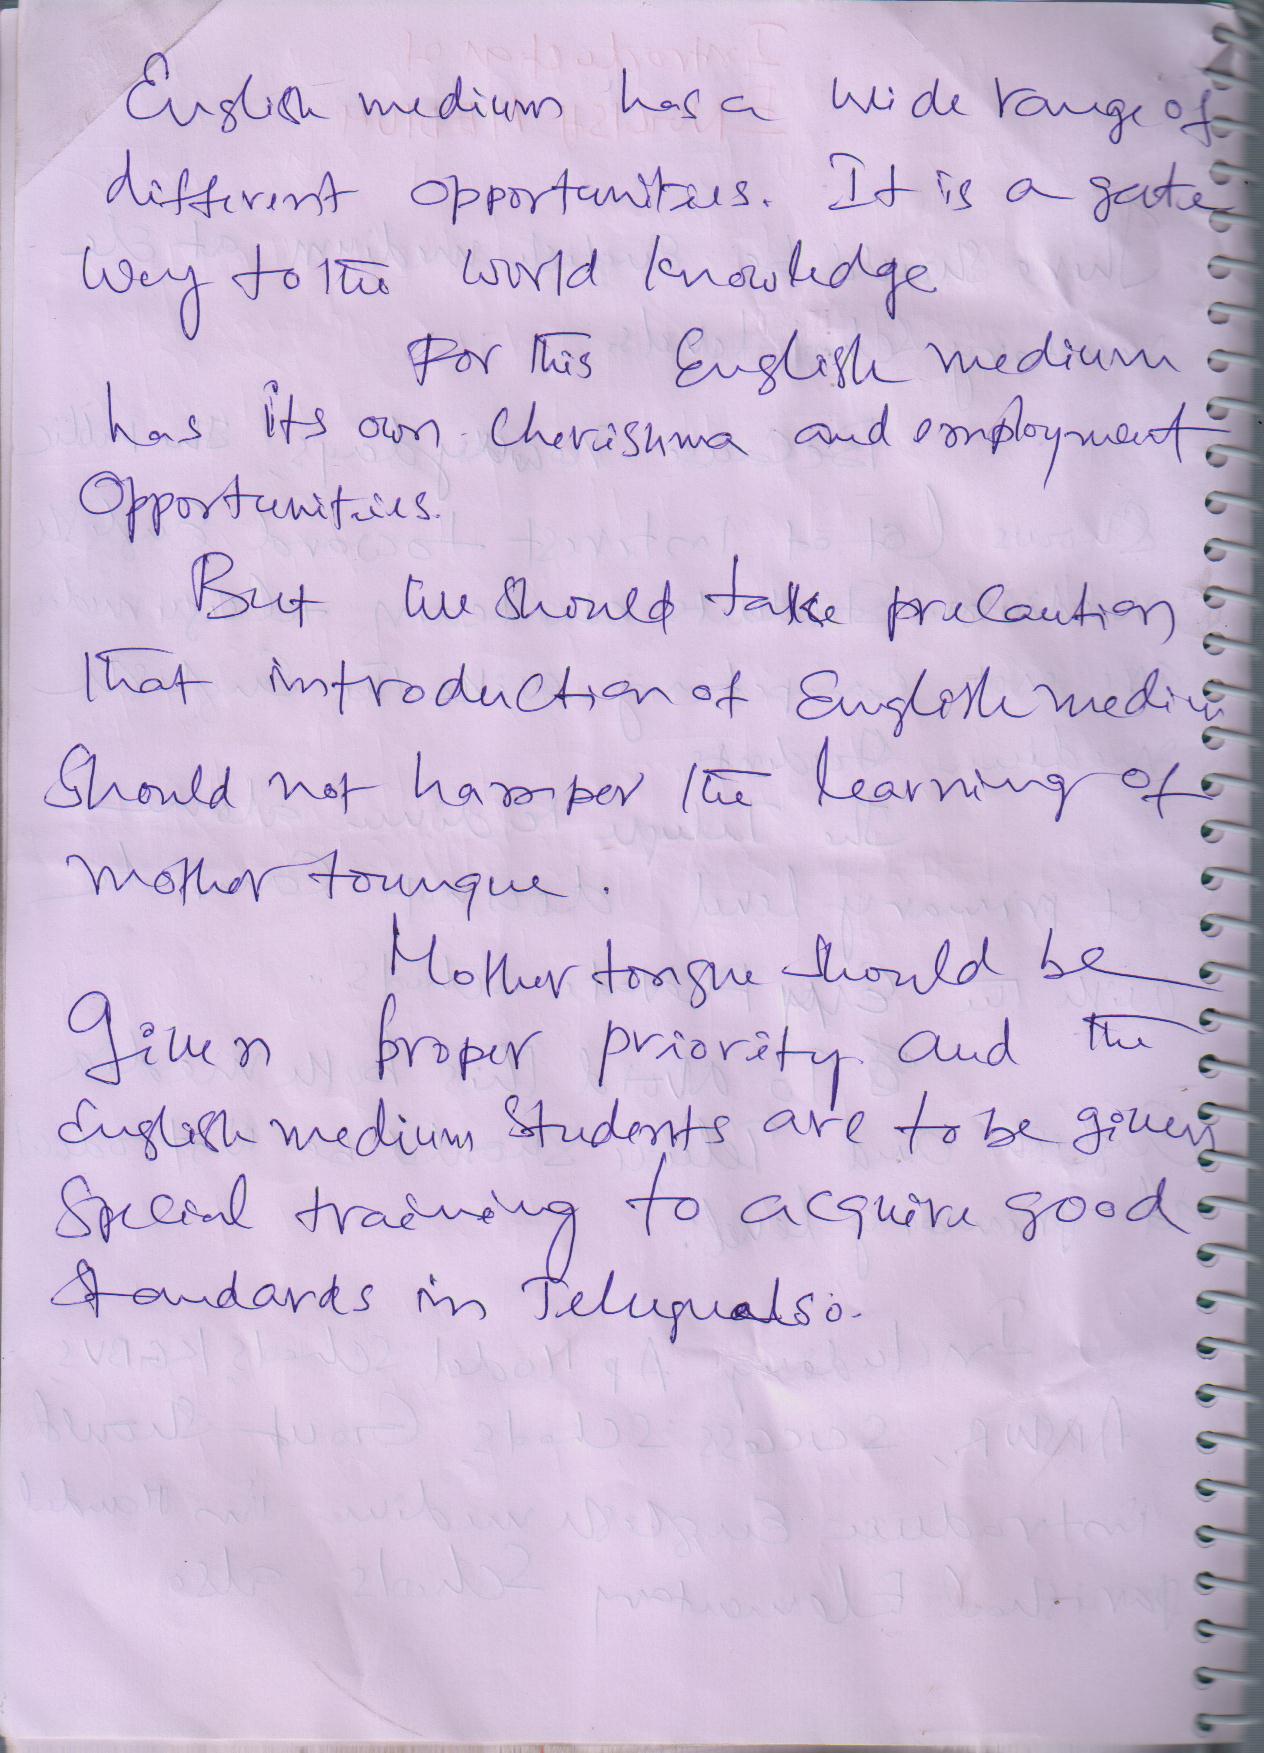 English medium has a wide range of
different opportunities. It is a gate
way to the world knowledge
For this English medium
has its own cherishma and employment
Opportunities.
But we should take precaution
that introduction of English medium
Should not hamper the learning of
mother toungue.
Mother tongue should be
Given proper priority and the
English medium Students are to be given
Special training to acquire good
Standards in Telugu also.